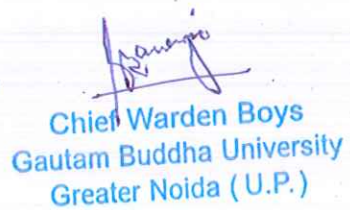 Chief Warden Boys
Gautam Buddha University
Greater Noida ( U.P. )